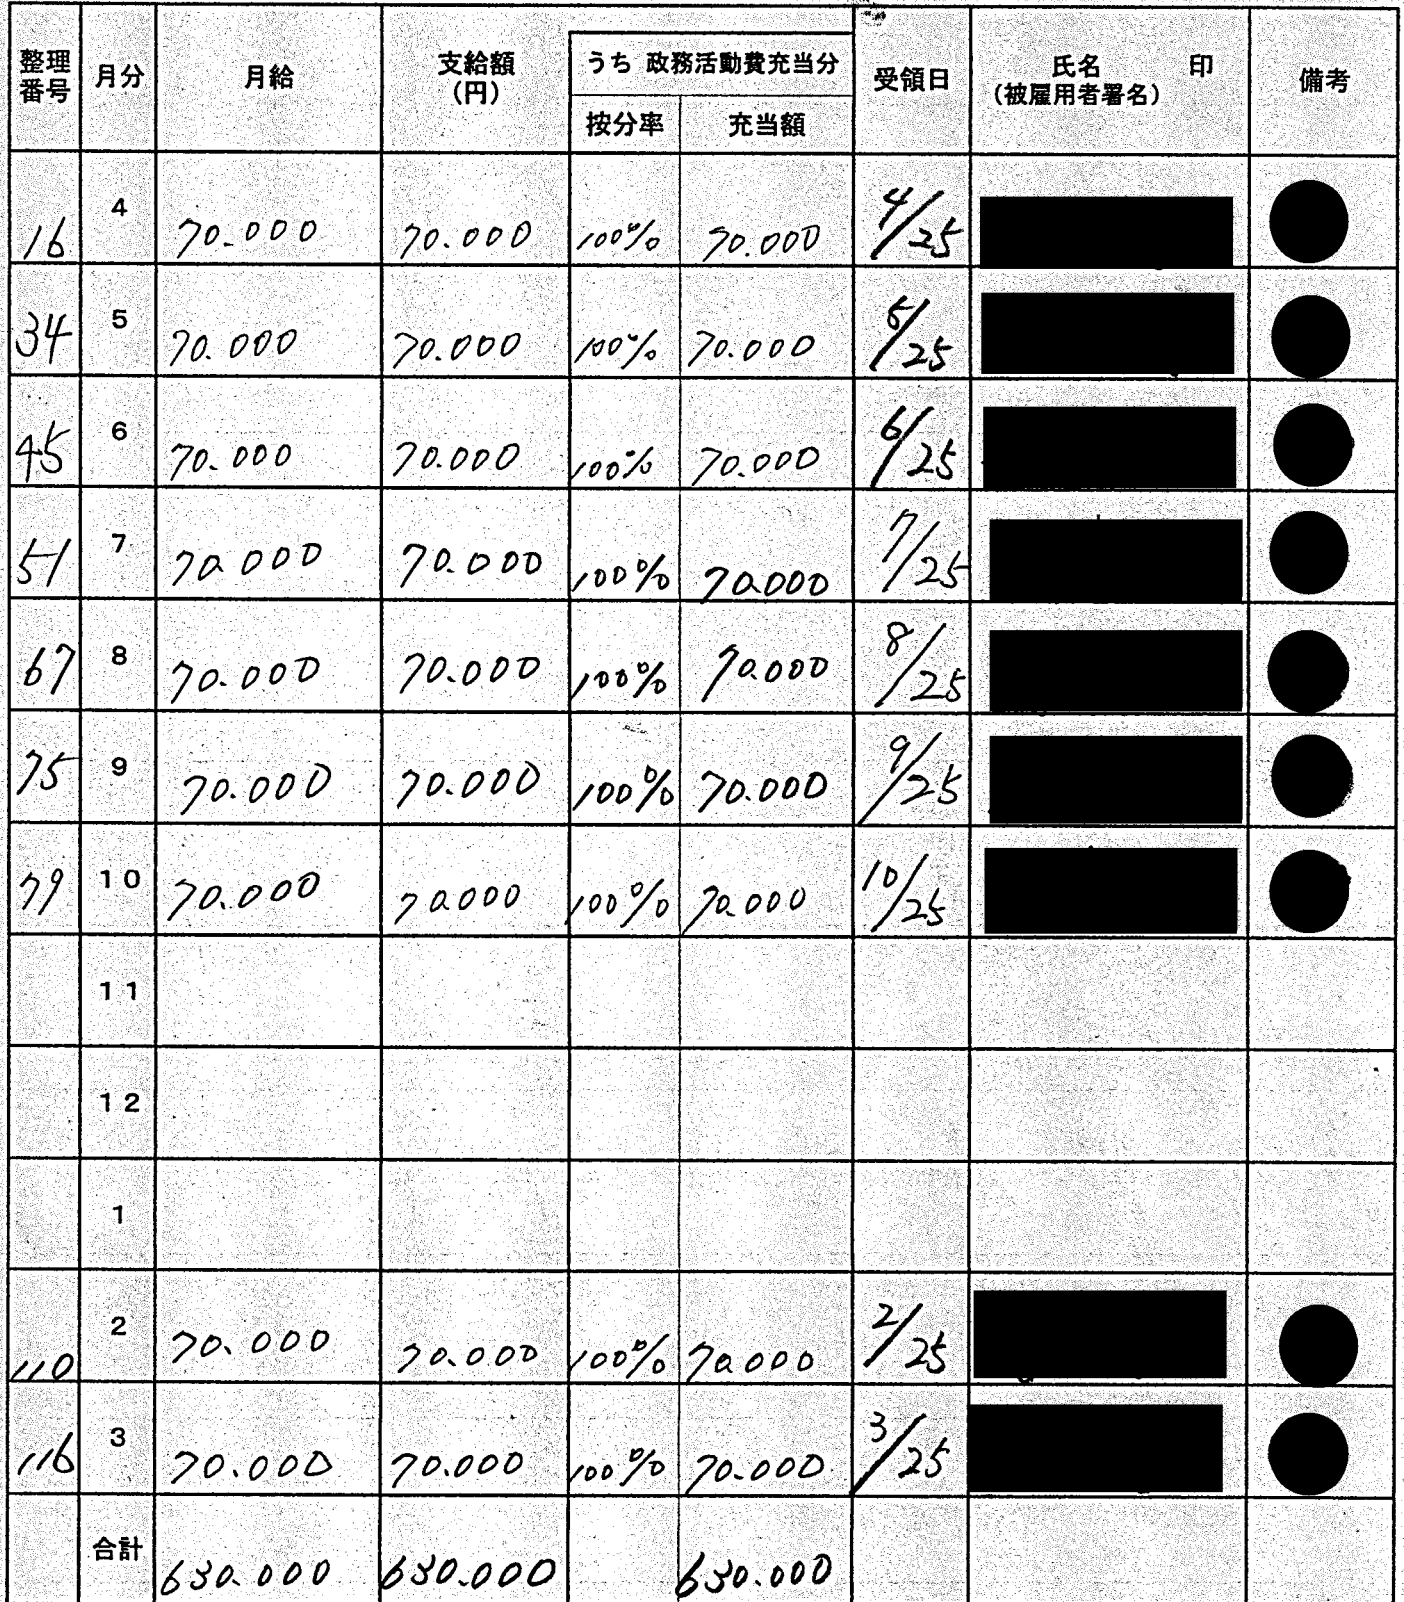 整理番号 月分 月給 支給額(円) うち 政務活動費充当分 受領日 氏名 印 (被雇用者署名) 備考
按分率 充当額
16 4 70.000 70.000 100% 70.000 4/25
34 5 70.000 70.000 100% 70.000 5/25
45 6 70.000 70.000 100% 70.000 6/25
51 7 70.000 70.000 100% 70.000 7/25
67 8 70.000 70.000 100% 70.000 8/25
75 9 70.000 70.000 100% 70.000 9/25
79 10 70.000 70.000 100% 70.000 10/25
11
12
1
110 2 70.000 70.000 100% 70.000 2/25
116 3 70.000 70.000 100% 70.000 3/25
合計 630.000 630.000 630.000